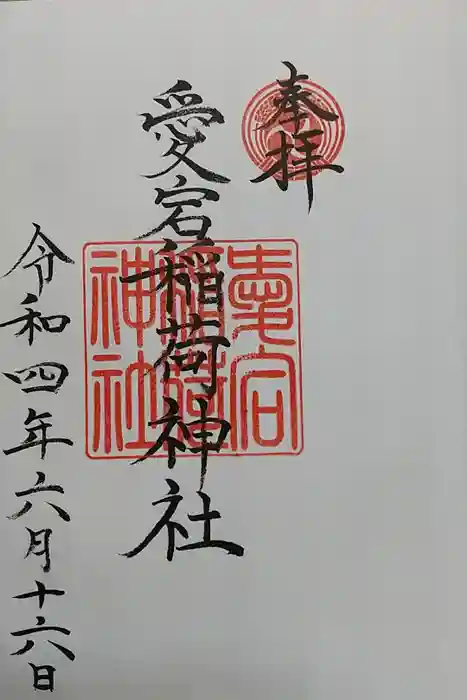 奉拝
愛宕稲荷神社
愛宕
稲荷
神社
令和四年六月十六日